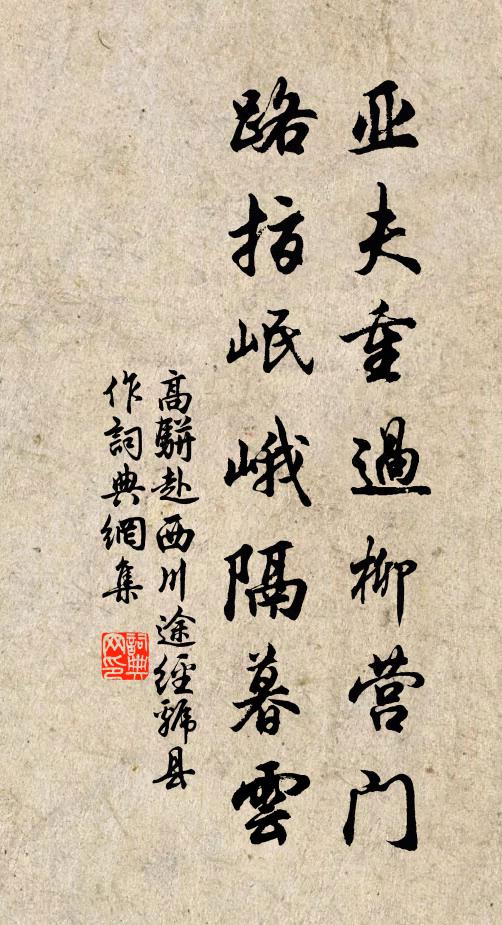 亚夫重過柳营门
路指岷峨隔暮雲
高駢赴西川途經虢县
作詞典網集
詞典
网印